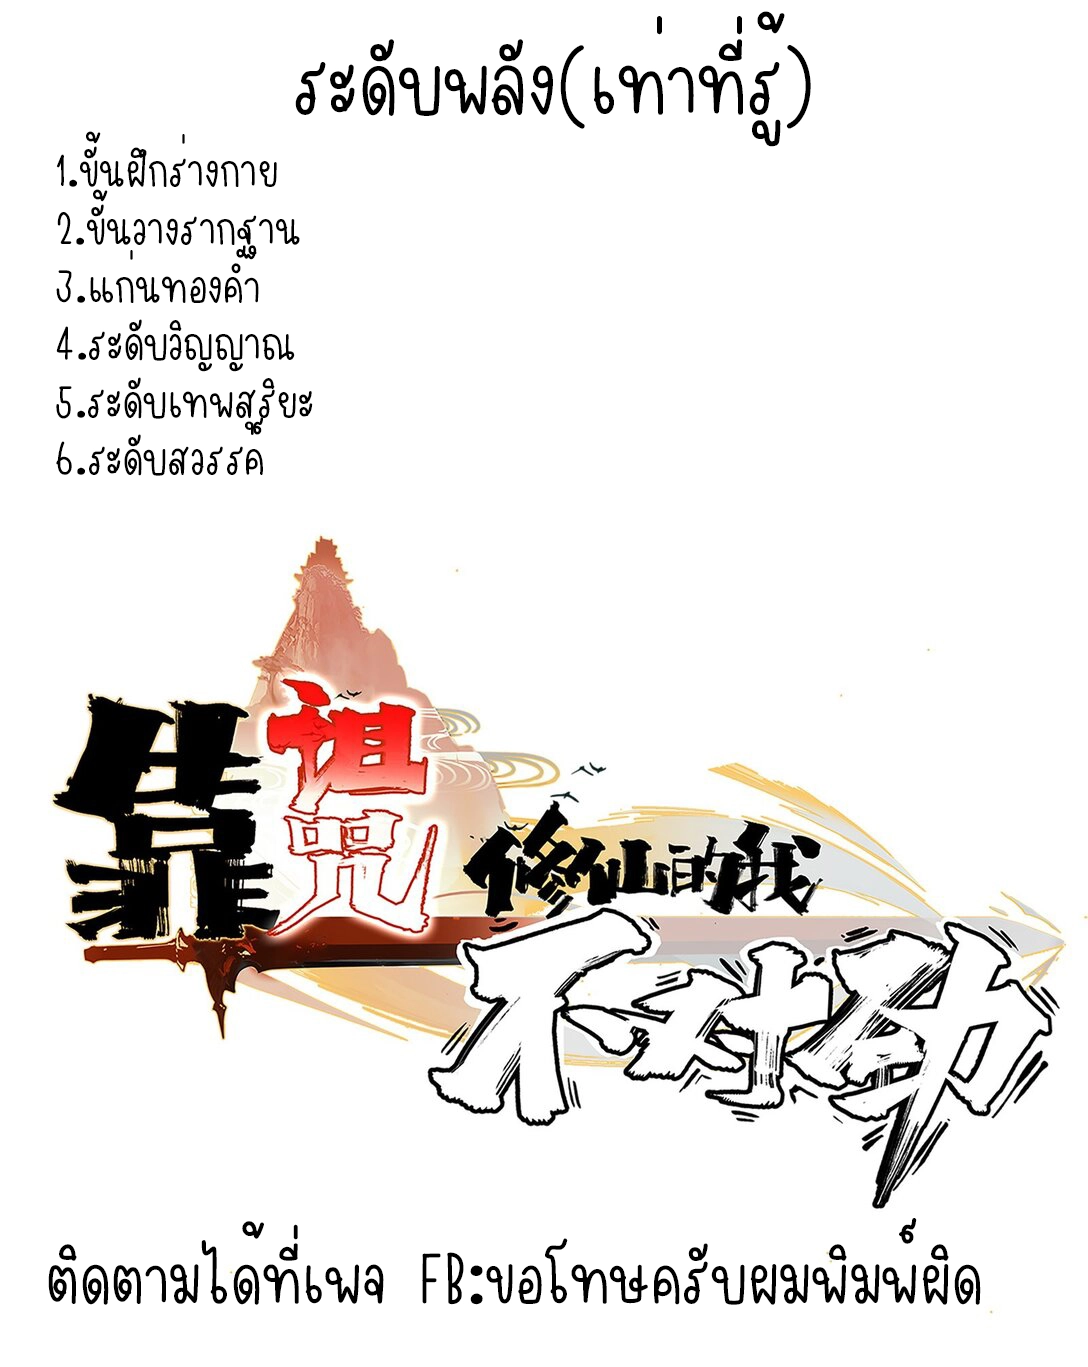 ระดับพลัง(เท่าที่รู้)
1.ขั้นฝึกร่างกาย
2.ขั้นวางรากฐาน
3.แก่นทองคำ
4.ระดับวิญญาณ
5.ระดับเทพสุริยะ
6.ระดับสวรรค์
靠诅咒修仙的我
不对劲
ติดตามได้ที่เพจ FB:ขอโทษครับผมพิมพ์ผิด